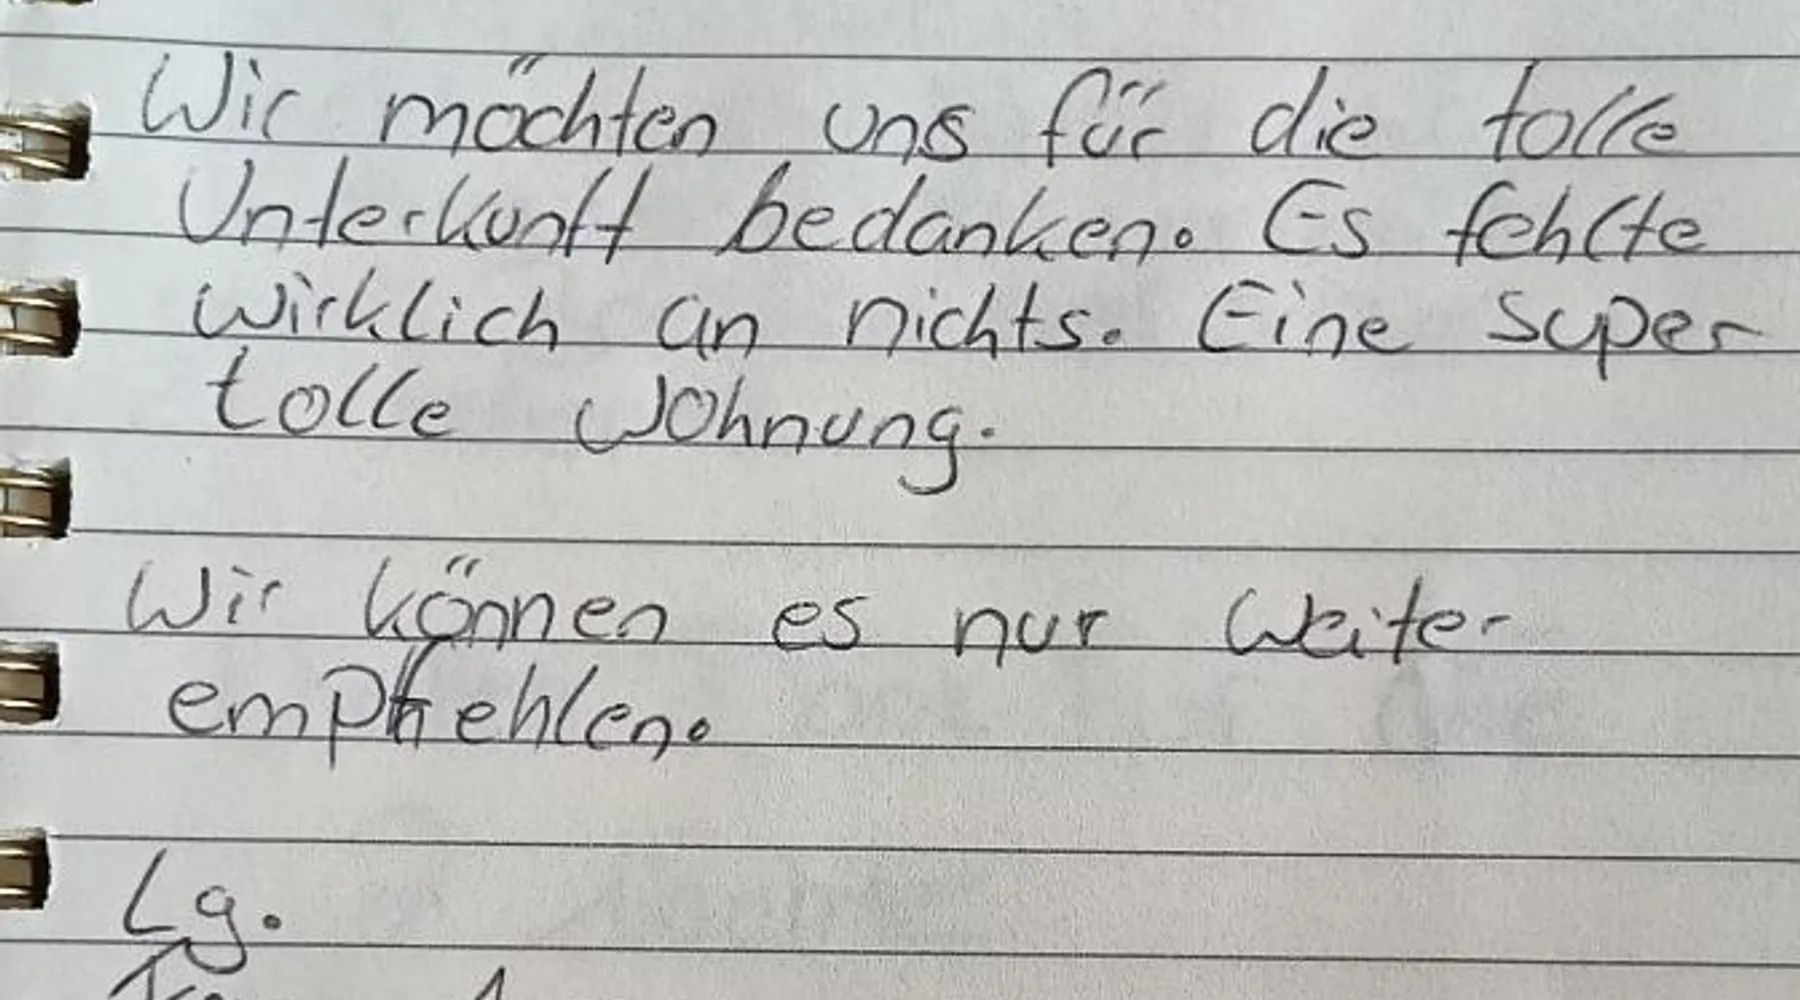 Wir möchten uns für die tolle
Unterkunft bedanken. Es fehlte
wirklich an nichts. Eine super
tolle Wohnung.
Wir können es nur weiter
empfehlen.
Lg.